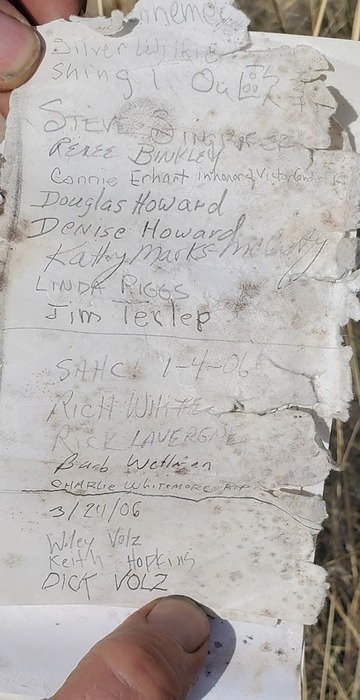 Silver Wilkie
Shing
STEVE
RENEE BINKLEY
Connie Erhart in honor of
Douglas Howard
Denise Howard
Kathy Marks-
LINDA RIGGS
Jim Terlep
SAHC 1-4-06
RICH WHITE
RICK LAVERGNE
Barb Wellman
CHARLIE WHITEMORE
3/24/06
Wiley Volz
Keith Hopkins
DICK VOLZ